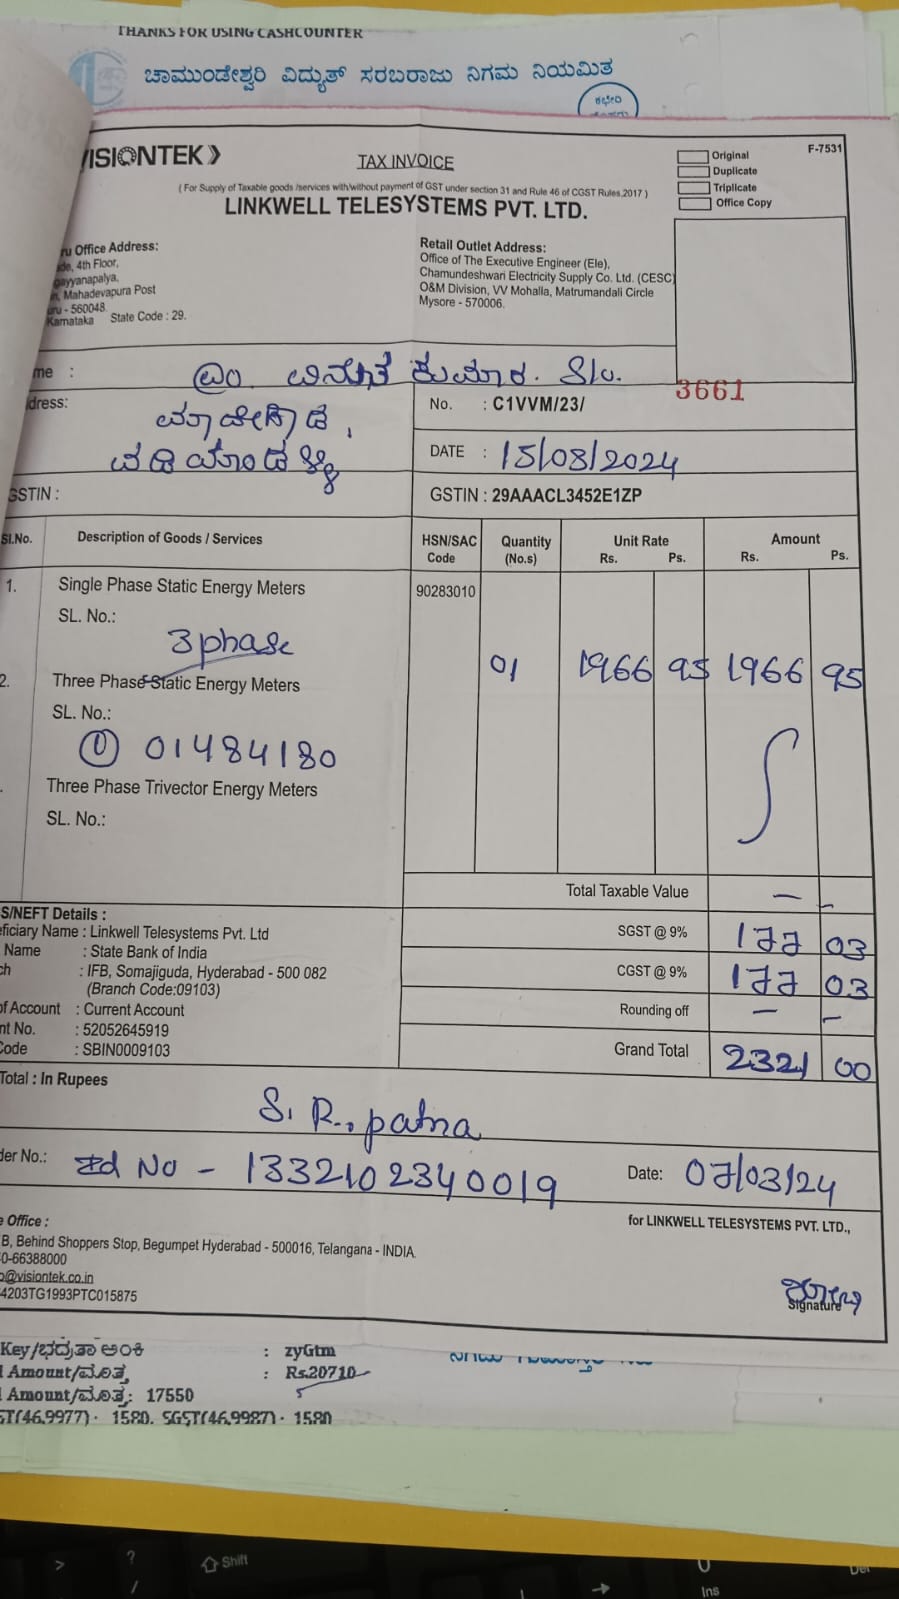 THANKS FOR USING CASHCOUNTER
ಚಾಮುಂಡೇಶ್ವರಿ ವಿದ್ಯುತ್ ಸರಬರಾಜು ನಿಗಮ ನಿಯಮಿತ
ಕಛೇರಿ
VISIONTEK
TAX INVOICE
Original
Duplicate
Triplicate
Office Copy
F-7531
( For Supply of Taxable goods /services with/without payment of GST under section 31 and Rule 46 of CGST Rules,2017 )
LINKWELL TELESYSTEMS PVT. LTD.
ru Office Address:
de, 4th Floor,
gayyanapalya,
n, Mahadevapura Post
uru - 560048.
Karnataka State Code : 29.
Retail Outlet Address:
Office of The Executive Engineer (Ele),
Chamundeshwari Electricity Supply Co. Ltd. (CESC)
O&M Division, VV Mohalla, Matrumandali Circle
Mysore - 570006.
me : ಕುಮಾರ. S/o.
dress:
No. : C1VVM/23/ 3661
DATE : 15/03/2024
GSTIN :
GSTIN : 29AAACL3452E1ZP
Sl.No. Description of Goods / Services HSN/SAC Code Quantity (No.s) Unit Rate Rs. Ps. Amount Rs. Ps.
1. Single Phase Static Energy Meters 90283010
SL. No.:
3 phase
01 1966 95 1966 95
2. Three Phase Static Energy Meters
SL. No.:
① 01484180
Three Phase Trivector Energy Meters
SL. No.:
Total Taxable Value — –
S/NEFT Details :
eficiary Name : Linkwell Telesystems Pvt. Ltd
Name : State Bank of India
ch : IFB, Somajiguda, Hyderabad - 500 082
(Branch Code:09103)
of Account : Current Account
nt No. : 52052645919
Code : SBIN0009103
SGST @ 9% 177 03
CGST @ 9% 177 03
Rounding off — –
Grand Total 2321 00
Total : In Rupees
S. R. patna
der No.: No - 1332102340019 Date: 07/03/24
e Office :
B, Behind Shoppers Stop, Begumpet Hyderabad - 500016, Telangana - INDIA.
0-66388000
o@visiontek.co.in
4203TG1993PTC015875
for LINKWELL TELESYSTEMS PVT. LTD.,
Signature
Key/ಭದ್ರತಾ ಅಂಕಿ : zyGtm
Amount/ಮೊತ್ತ : Rs.20710
Amount/ಮೊತ್ತ: 17550
ST(46.9977): 1580. SGST(46.9987): 1580
Shift
Ins